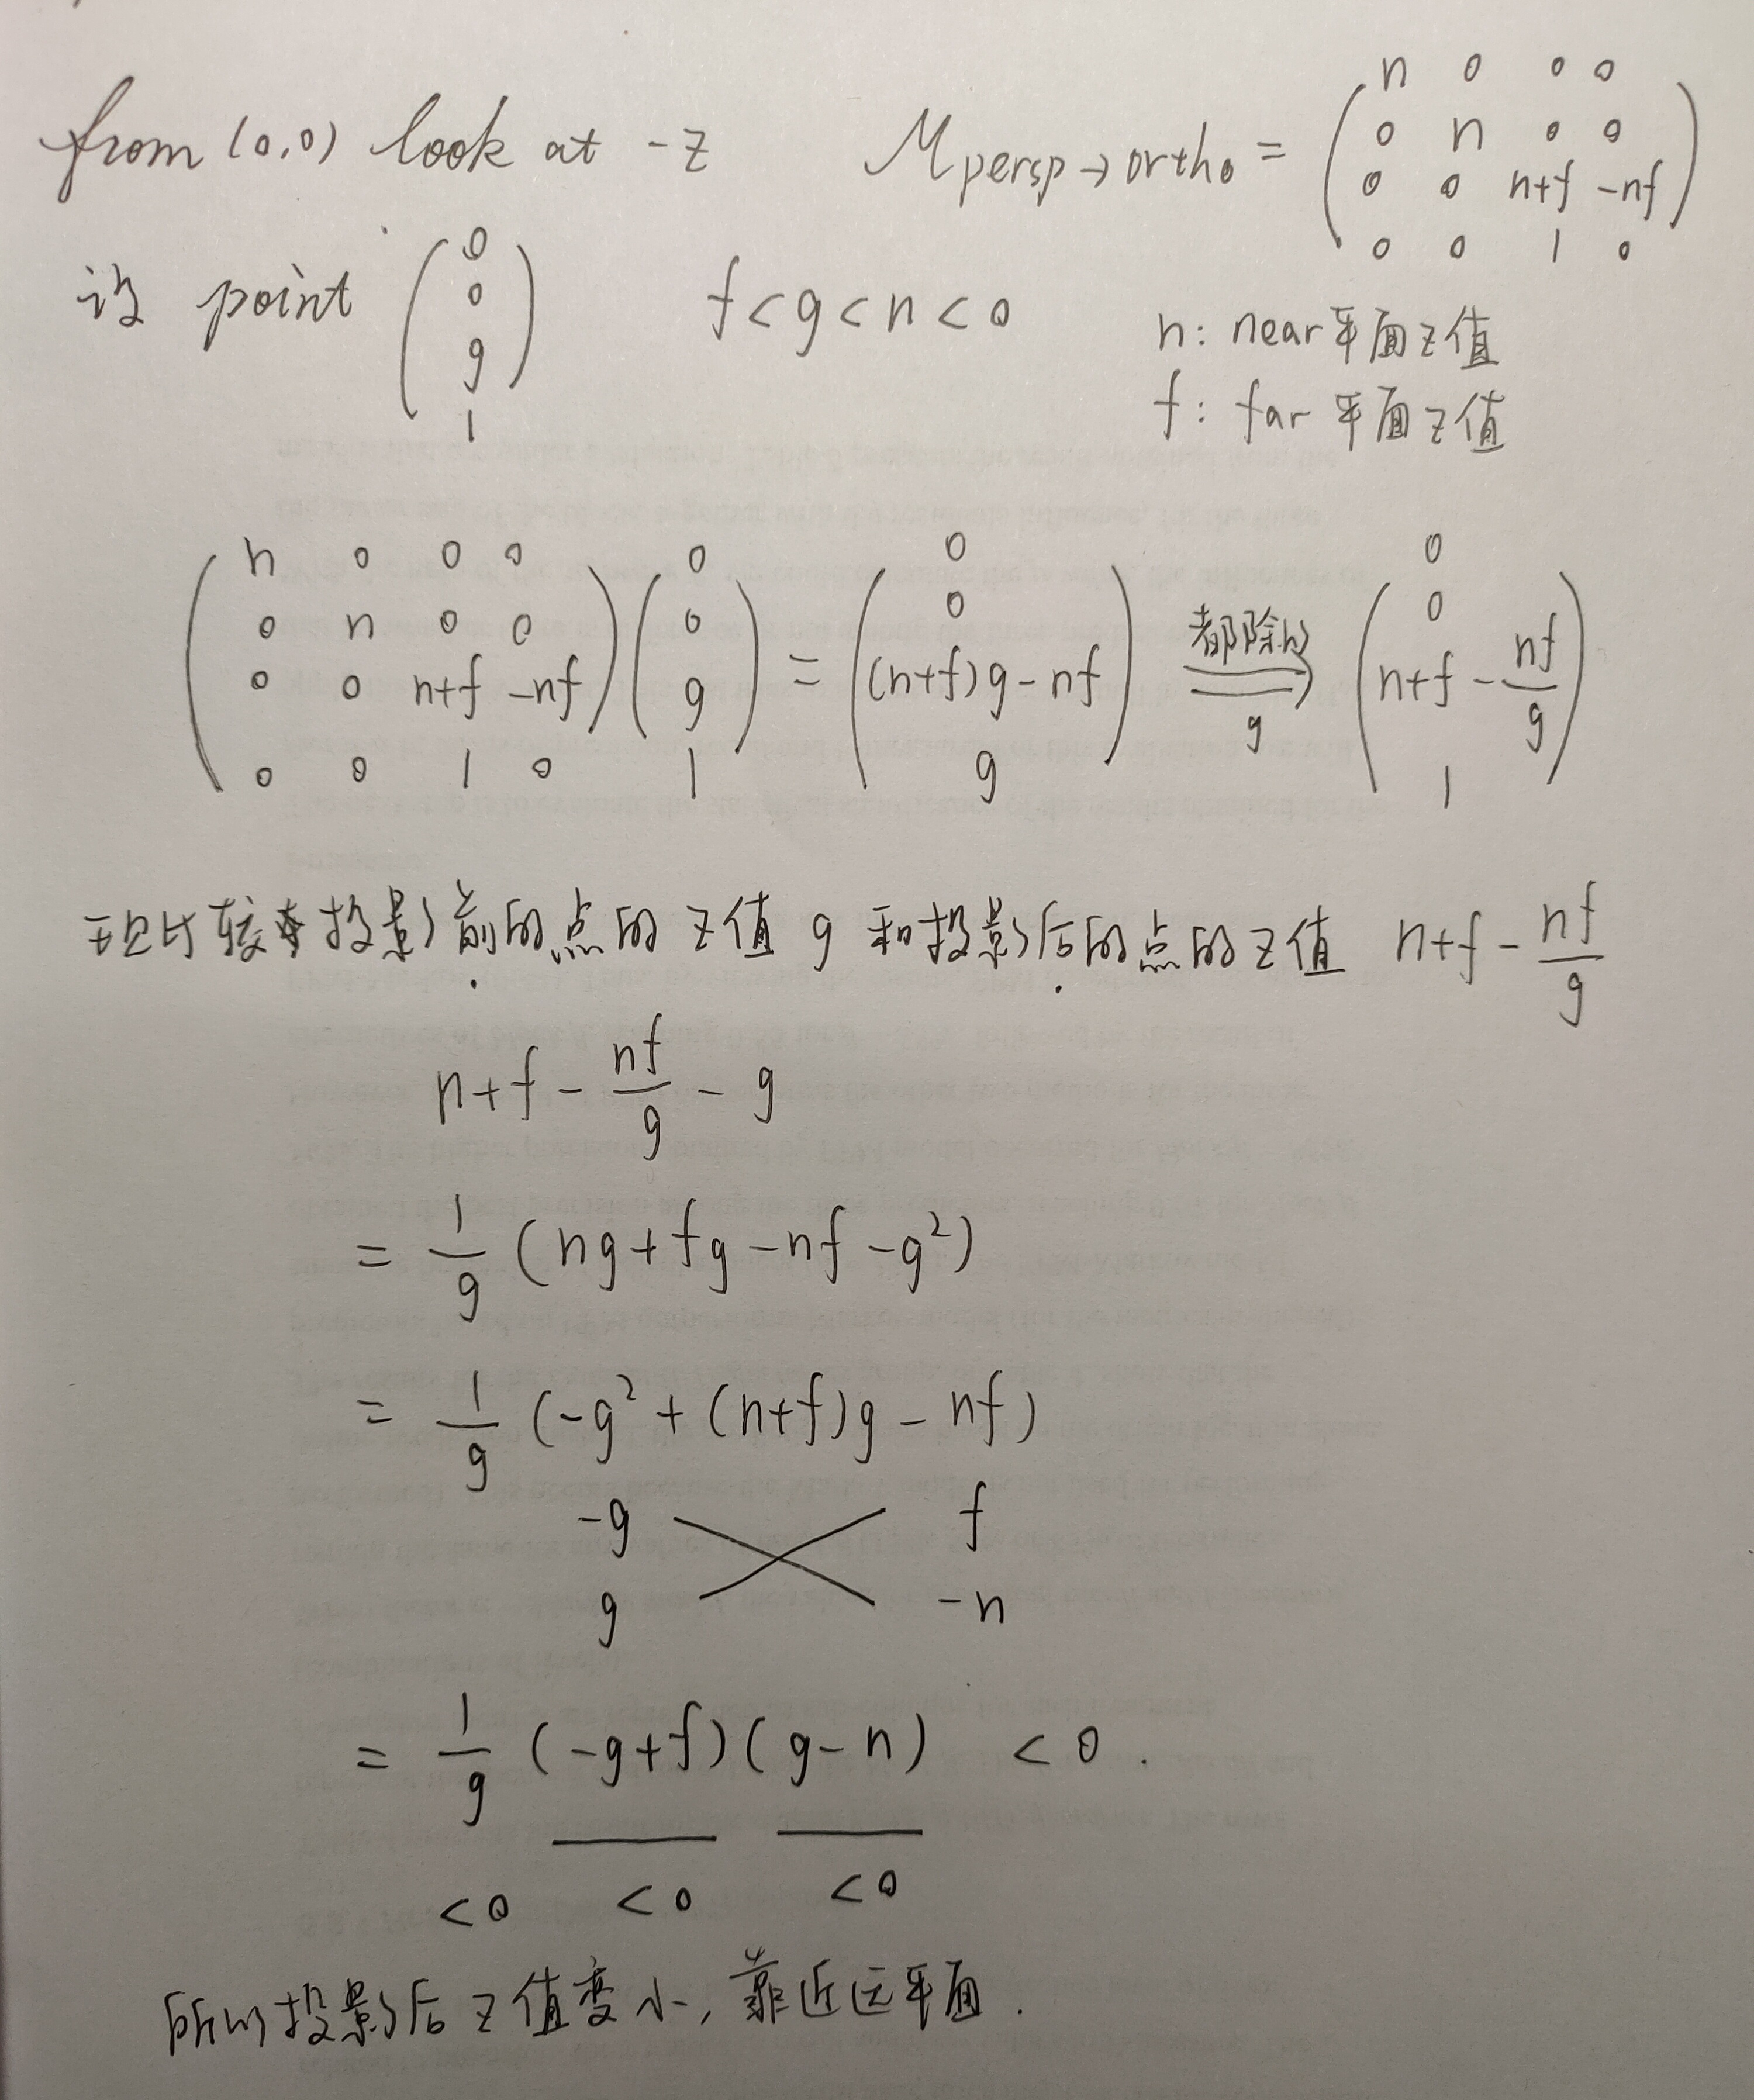 from (0,0) look at -z M persp→ortho = ( n 0 0 0
0 n 0 0
0 0 n+f -nf
0 0 1 0 )
设 point ( 0 0 g 1 ) f < g < n < 0
n: near平面z值
f: far平面z值
( n 0 0 0
0 n 0 0
0 0 n+f -nf
0 0 1 0 ) ( 0 0 g 1 ) = ( 0 0 (n+f)g-nf g ) 都除以 g ⇒ ( 0 0 n+f-nf/g 1 )
现比较投影前的点的z值 g 和投影后的点的z值 n+f-nf/g
n+f-nf/g-g
= 1/g (ng+fg-nf-g²)
= 1/g (-g²+(n+f)g-nf)
-g f
g -n
= 1/g (-g+f)(g-n) <0.
<0 <0 <0
所以投影后z值变小,靠近远平面.